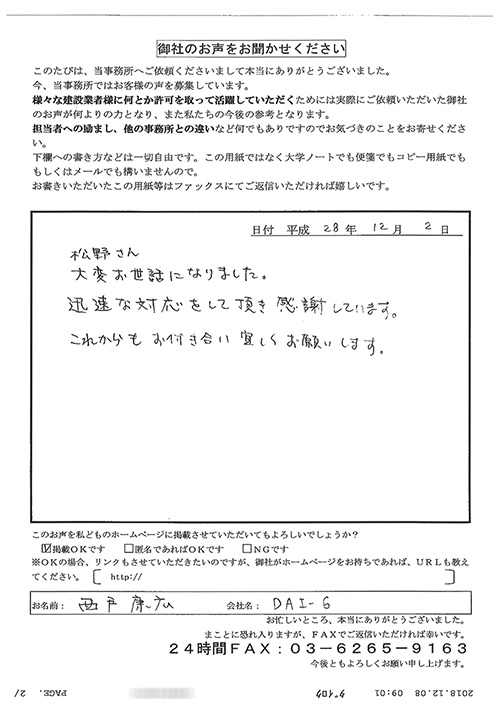 御社のお声をお聞かせください
このたびは、当事務所へご依頼くださいまして本当にありがとうございました。
今、当事務所ではお客様の声を募集しています。
様々な建設業者様に何とか許可を取って活躍していただくためには実際にご依頼いただいた御社
のお声が何よりの力となり、また私たちの今後の参考となります。
担当者への励まし、他の事務所との違いなど何でもありですのでお気づきのことをお寄せくださ
い。
下欄への書き方などは一切自由です。この用紙ではなく大学ノートでも便箋でもコピー用紙でも
もしくはメールでも構いませんので。
お書きいただいたこの用紙等はファックスにてご返信いただければ嬉しいです。
日付 平成 28年 12月 2日
松野さん
大変お世話になりました。
迅速な対応をして頂き感謝しています。
これからもお付き合い宜しくお願いします。
このお声を私どものホームページに掲載させていただいてもよろしいでしょうか?
☑掲載OKです □匿名であればOKです □NGです
※OKの場合、リンクもさせていただきたいのですが、御社がホームページをお持ちであれば、URLも教え
てください。[ http:// ]
お名前: 西戸 康 会社名: DAI-6
お忙しいところ、本当にありがとうございました。
まことに恐れ入りますが、FAXでご返信いただければ幸いです。
24時間FAX:03-6265-9163
今後ともよろしくお願い申し上げます。
2018.12.08 09:01 ダイロク PAGE. 2/